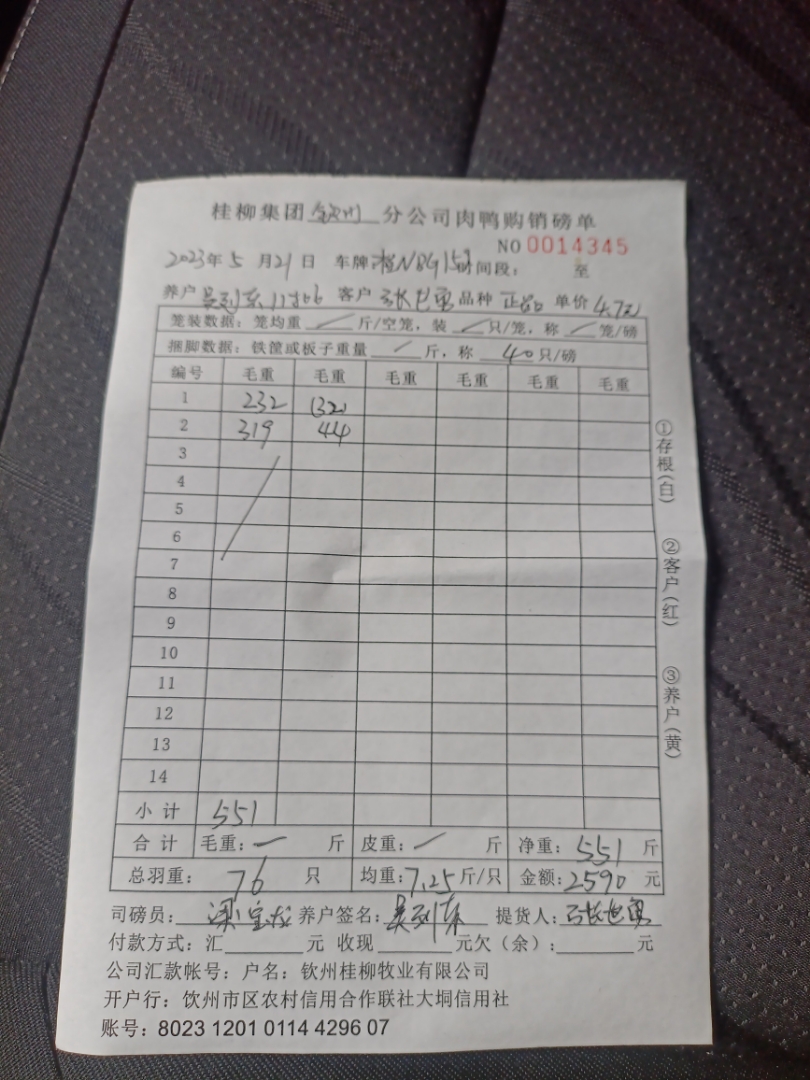 桂柳集团 钦州 分公司肉鸭购销磅单
NO 0014345
2023年 5 月 21 日 车牌 时间段： 至
养户 客户 品种 正品 单价
笼装数据：笼均重 / 斤/空笼，装 / 只/笼，称 / 笼/磅
捆脚数据：铁筐或板子重量 / 斤，称 40 只/磅
编号 毛重 毛重 毛重 毛重 毛重 毛重
1 232 (32)
2 319 44
3
4
5
6
7
8
9
10
11
12
13
14
小 计 551
合 计 毛重：一 斤 皮重：/ 斤 净重：551 斤
总羽重： 76 只 均重：7.25 斤/只 金额：2590 元
司磅员： 养户签名： 提货人：
付款方式：汇 元 收现 元欠（余）： 元
公司汇款帐号：户名：钦州桂柳牧业有限公司
开户行：钦州市区农村信用合作联社大垌信用社
账号：8023 1201 0114 4296 07
①存根(白)
②客户(红)
③养户(黄)